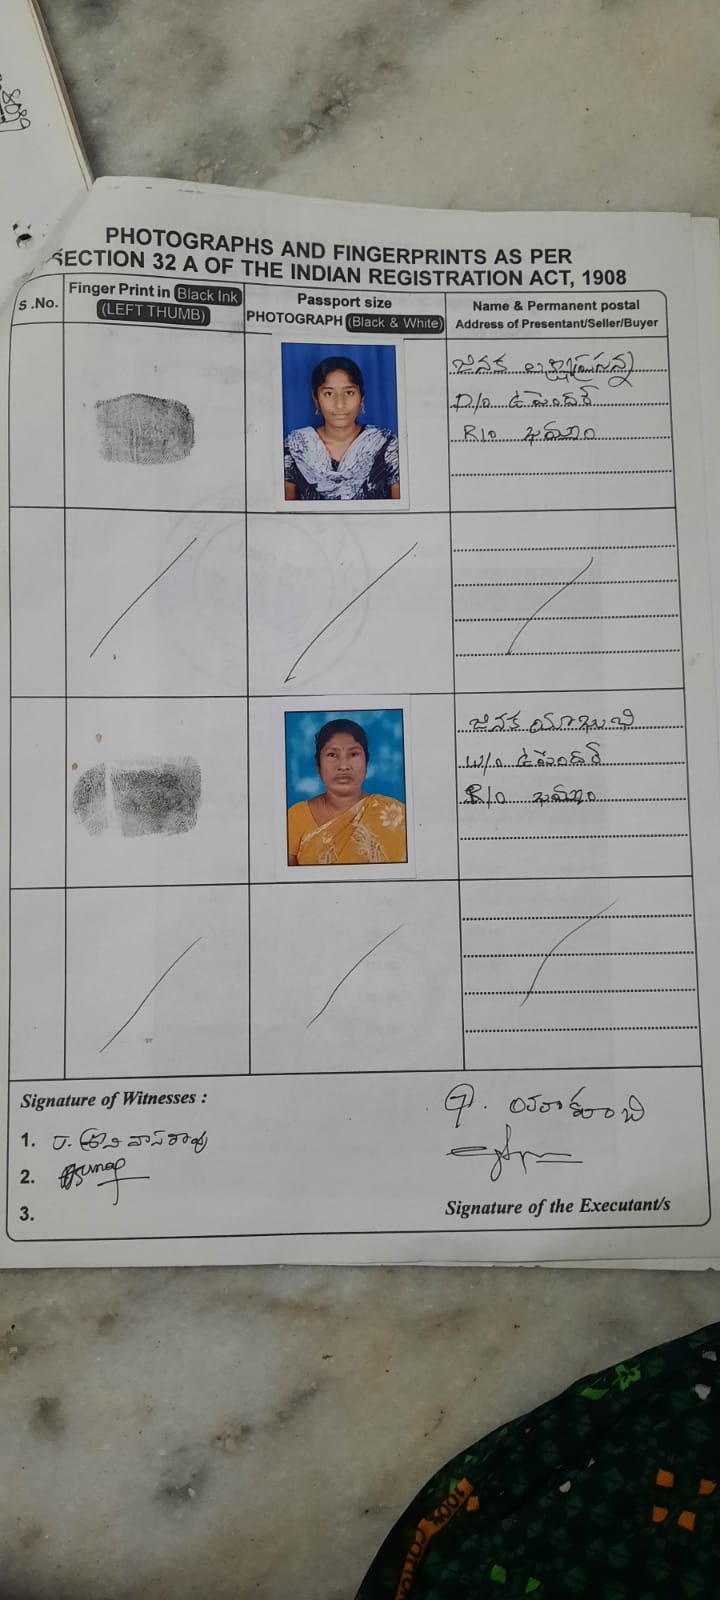 PHOTOGRAPHS AND FINGERPRINTS AS PER
SECTION 32 A OF THE INDIAN REGISTRATION ACT, 1908
S.No.
Finger Print in Black Ink
(LEFT THUMB)
Passport size
PHOTOGRAPH (Black & White)
Name & Permanent postal
Address of Presentant/Seller/Buyer
జినక
D/o ఉపేందర్
R/o ఖమ్మం
జినక యాకుబి
W/o ఉపేందర్
R/o ఖమ్మం
Signature of Witnesses :
1. శ్రీనివాసరావు
2.
3.
Signature of the Executant/s
100%